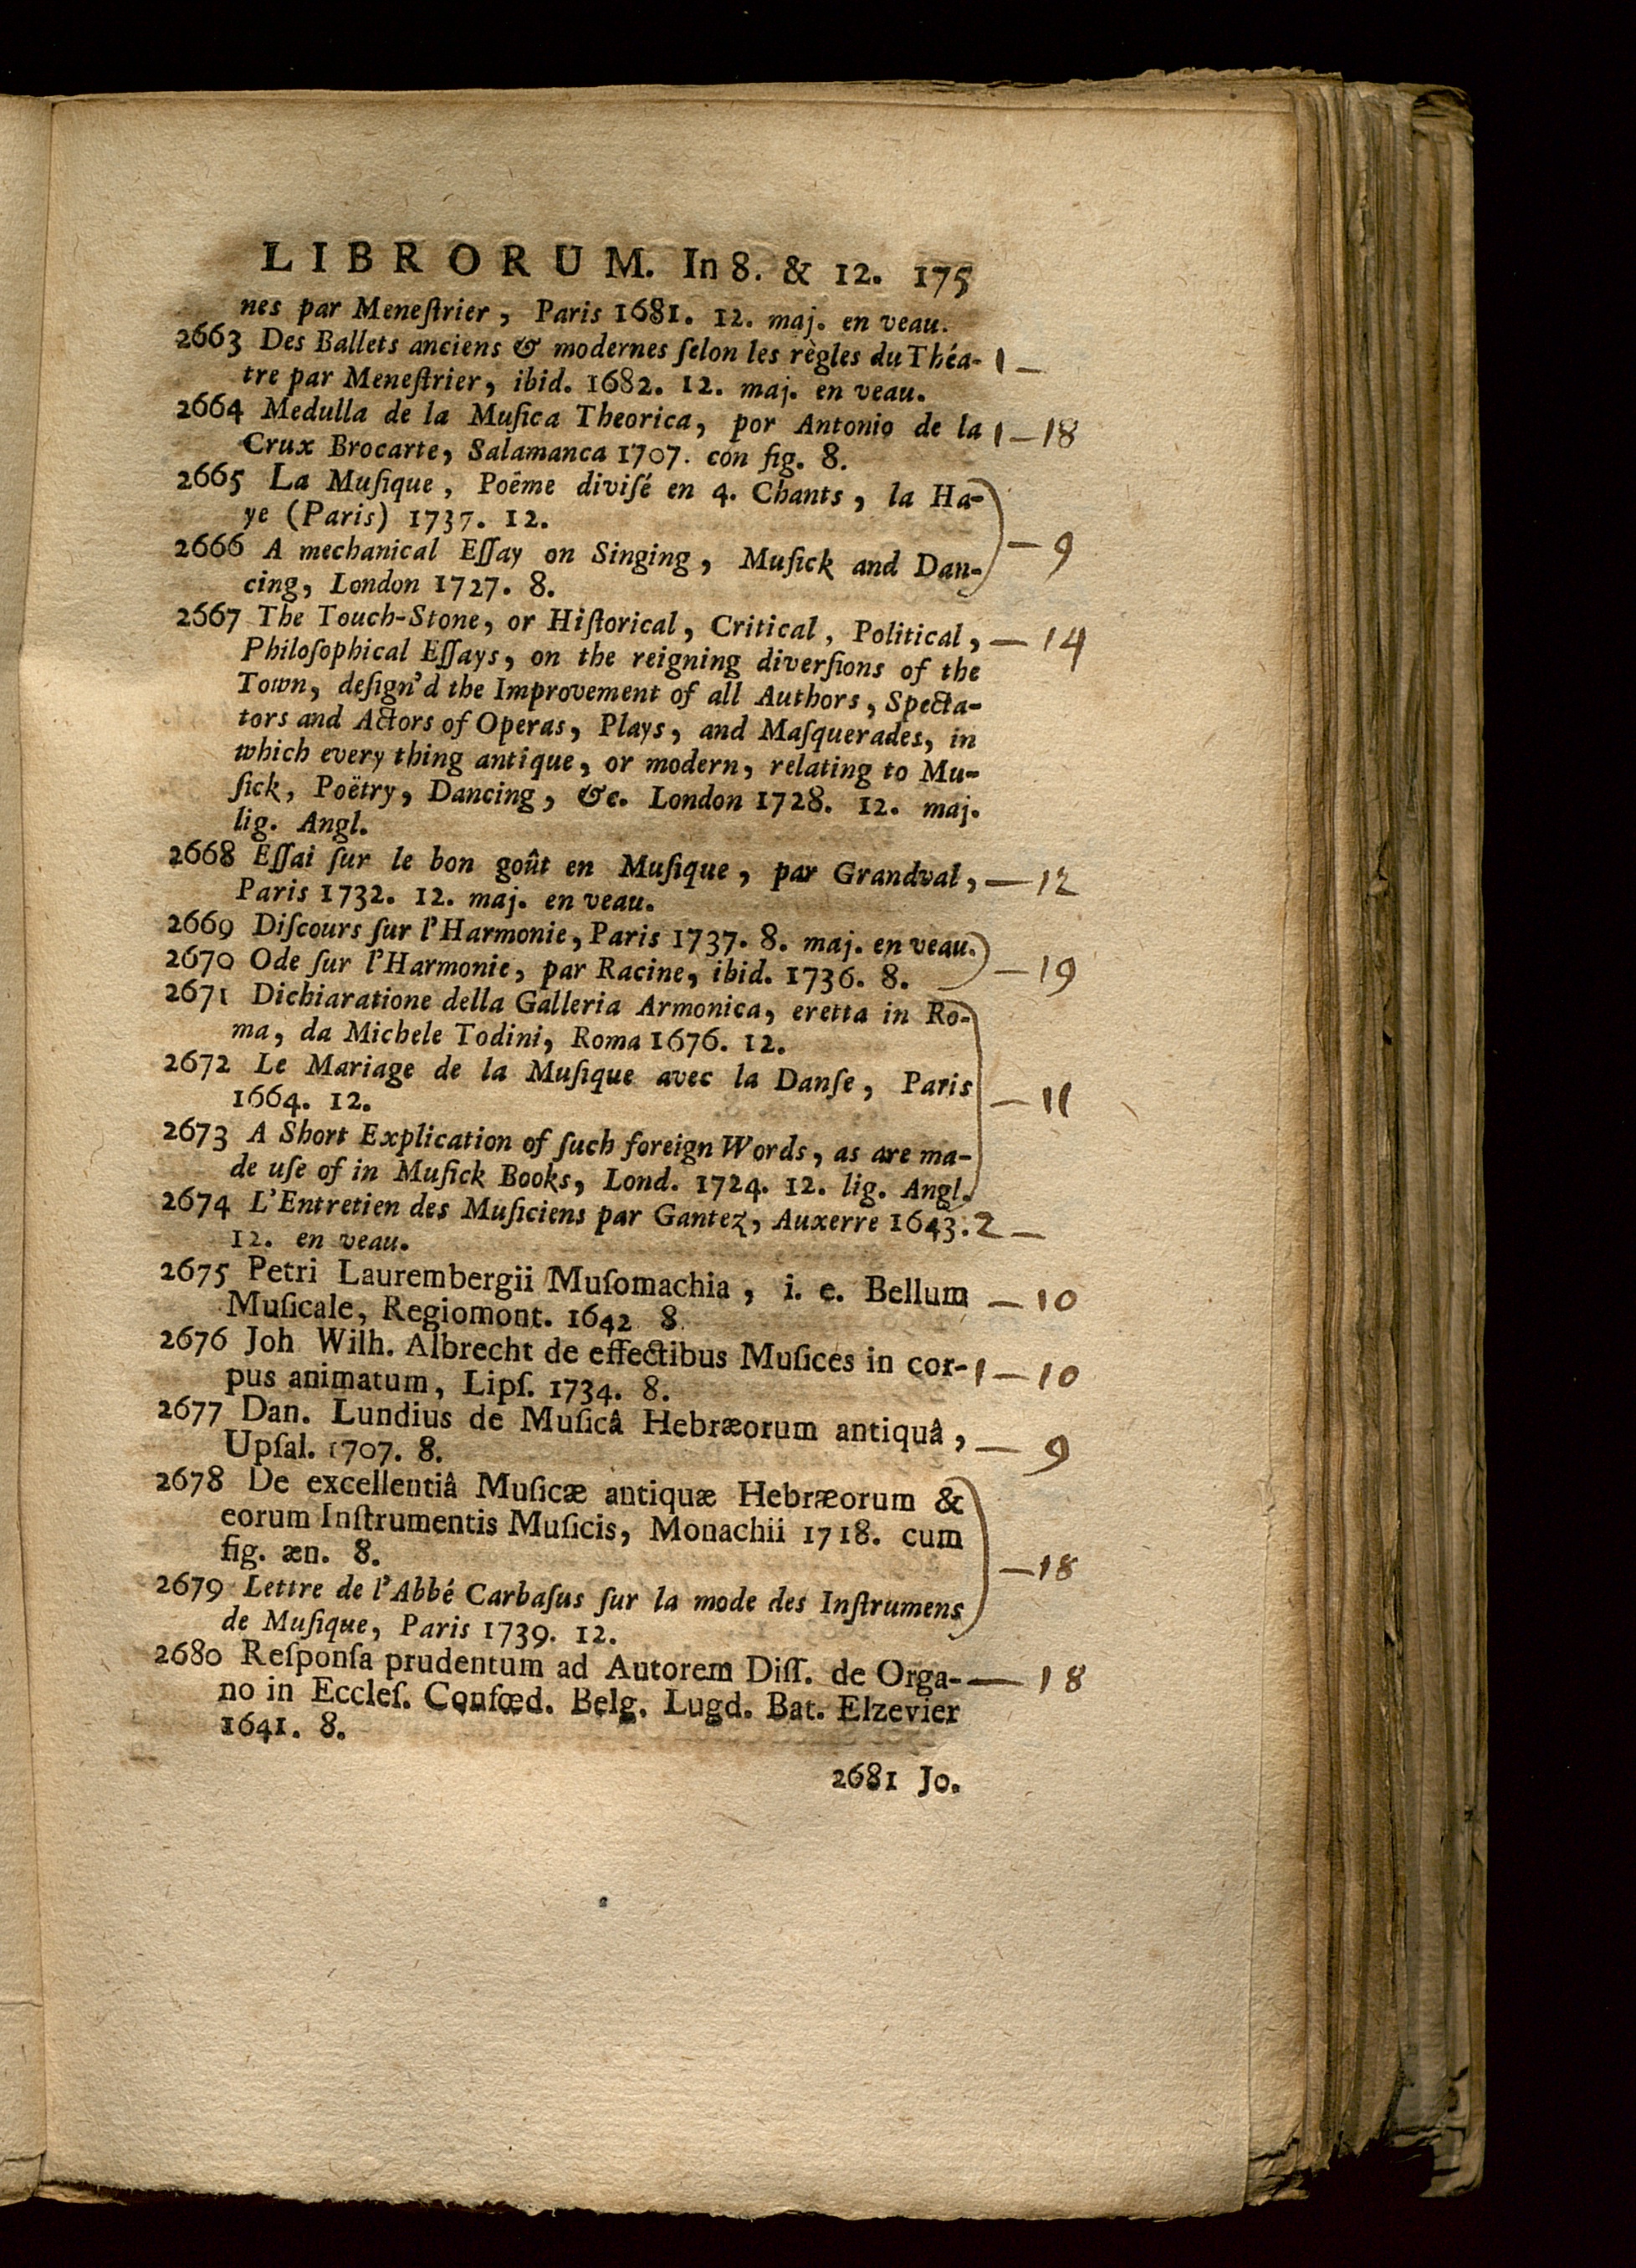 LIBRORUM. In 8. & 12. 175
nes par Meneſtrier, Paris 1681. 12. maj. en veau.
2663 Des Ballets anciens & modernes ſelon les règles du Théa- 1 —
tre par Meneſtrier, ibid. 1682. 12. maj. en veau.
2664 Medulla de la Muſica Theorica, por Antonio de la 1 — 18
Crux Brocarte, Salamanca 1707. con fig. 8.
2665 La Muſique, Poême diviſé en 4. Chants, la Ha-
ye (Paris) 1737. 12.
2666 A mechanical Eſſay on Singing, Muſick and Dan- — 9
cing, London 1727. 8.
2667 The Touch-Stone, or Hiſtorical, Critical, Political, — 14
Philoſophical Eſſays, on the reigning diverſions of the
Town, deſign'd the Improvement of all Authors, Specta-
tors and Actors of Operas, Plays, and Maſquerades, in
which every thing antique, or modern, relating to Mu-
ſick, Poëtry, Dancing, &c. London 1728. 12. maj.
lig. Angl.
2668 Eſſai ſur le bon goût en Muſique, par Grandval, — 12
Paris 1732. 12. maj. en veau.
2669 Diſcours ſur l'Harmonie, Paris 1737. 8. maj. en veau.
2670 Ode ſur l'Harmonie, par Racine, ibid. 1736. 8. — 19
2671 Dichiaratione della Galleria Armonica, eretta in Ro-
ma, da Michele Todini, Roma 1676. 12.
2672 Le Mariage de la Muſique avec la Danſe, Paris — 11
1664. 12.
2673 A Short Explication of ſuch foreign Words, as are ma-
de uſe of in Muſick Books, Lond. 1724. 12. lig. Angl.
2674 L'Entretien des Muſiciens par Gantez, Auxerre 1643. 2 —
12. en veau.
2675 Petri Laurembergii Muſomachia, i. e. Bellum — 10
Muſicale, Regiomont. 1642 8.
2676 Joh Wilh. Albrecht de effectibus Muſices in cor- 1 — 10
pus animatum, Lipſ. 1734. 8.
2677 Dan. Lundius de Muſicâ Hebræorum antiquâ, — 9
Upſal. 1707. 8.
2678 De excellentiâ Muſicæ antiquæ Hebræorum &
eorum Inſtrumentis Muſicis, Monachii 1718. cum
fig. æn. 8. — 18
2679 Lettre de l'Abbé Carbaſus ſur la mode des Inſtrumens
de Muſique, Paris 1739. 12.
2680 Reſponſa prudentum ad Autorem Diſſ. de Orga- — 18
no in Eccleſ. Confœd. Belg. Lugd. Bat. Elzevier
1641. 8.
2681 Jo.